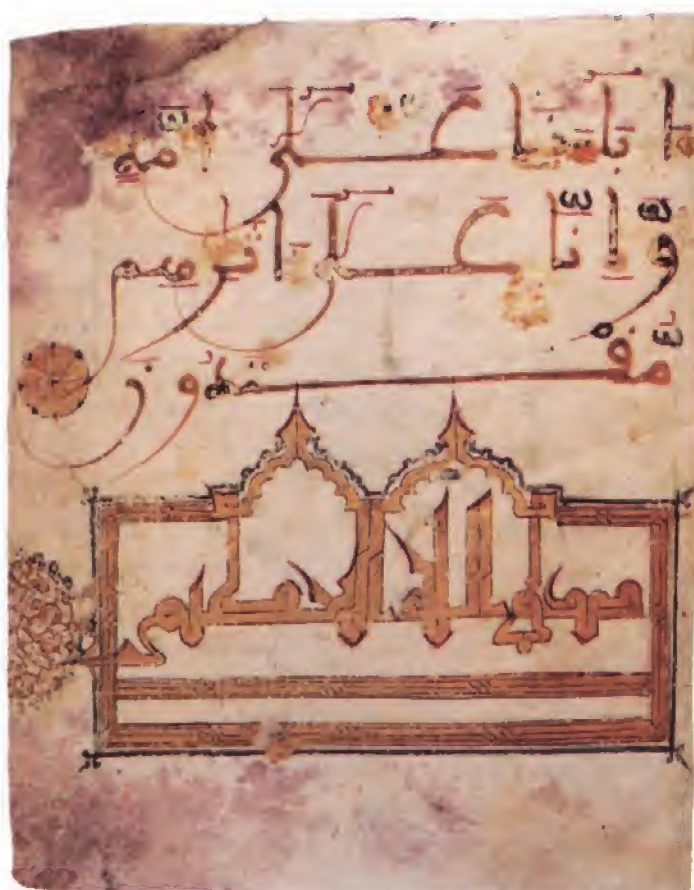 اباءنا على امة
وانا على اثرهم
مقتدون
صدق الله العظيم